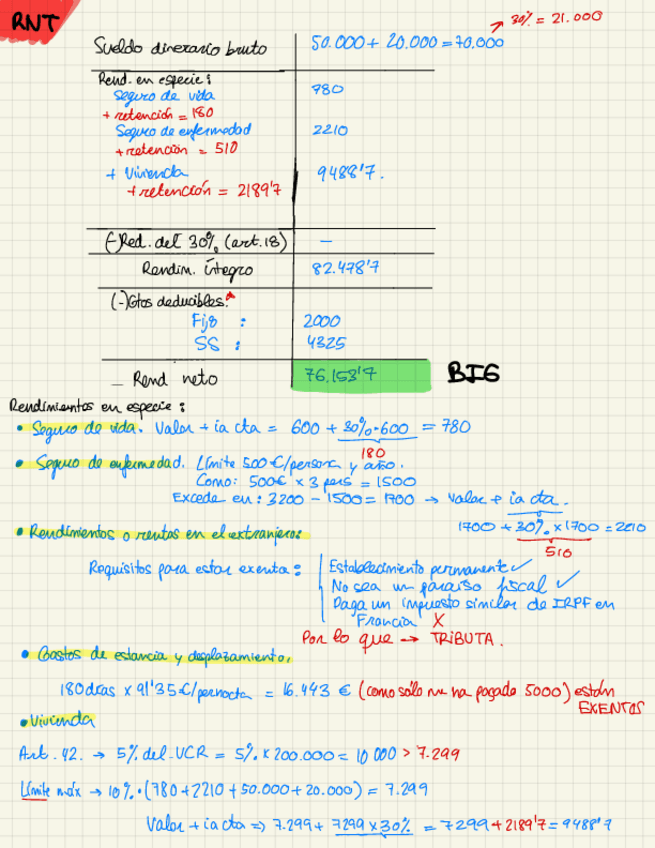 RNT
30% = 21.000
Sueldo dinerario bruto 50.000 + 20.000 = 70.000
Rend. en especie:
Seguro de vida 780
+ retención = 180
Seguro de enfermedad 2210
+ retención = 510
+ Vivienda 9488'7.
+ retención = 2189'7
(-) Red. del 30% (art. 18) -
Rendim. íntegro 82.478'7
(-) Gtos deducibles:
Fijo : 2000
SS : 4325
Rend neto 76.153'7 BIG
Rendimientos en especie:
• Seguro de vida. Valor + ia cta = 600 + 30%·600 = 780
180
• Seguro de enfermedad. Límite 500€/persona y año.
Como: 500€ x 3 pers = 1500
Excede en: 3200 - 1500 = 1700 → Valor + ia cta.
1700 + 30% x 1700 = 2210
510
• Rendimientos o rentas en el extranjero:
Requisitos para estar exenta: Establecimiento permanente ✓
No sea un paraíso fiscal ✓
Paga un impuesto similar de IRPF en
Francia X
Por lo que → TRIBUTA.
• Gastos de estancia y desplazamiento.
180 días x 91'35€/pernocta = 16.443 € (como sólo me ha pagado 5000) están
EXENTOS
• Vivienda
Art. 42. → 5% del VCR = 5% x 200.000 = 10 000 > 7.299
Límite máx → 10%·(780+2210+50.000+20.000) = 7.299
Valor + ia cta => 7.299 + 7299 x 30% = 7299 + 2189'7 = 9488'7